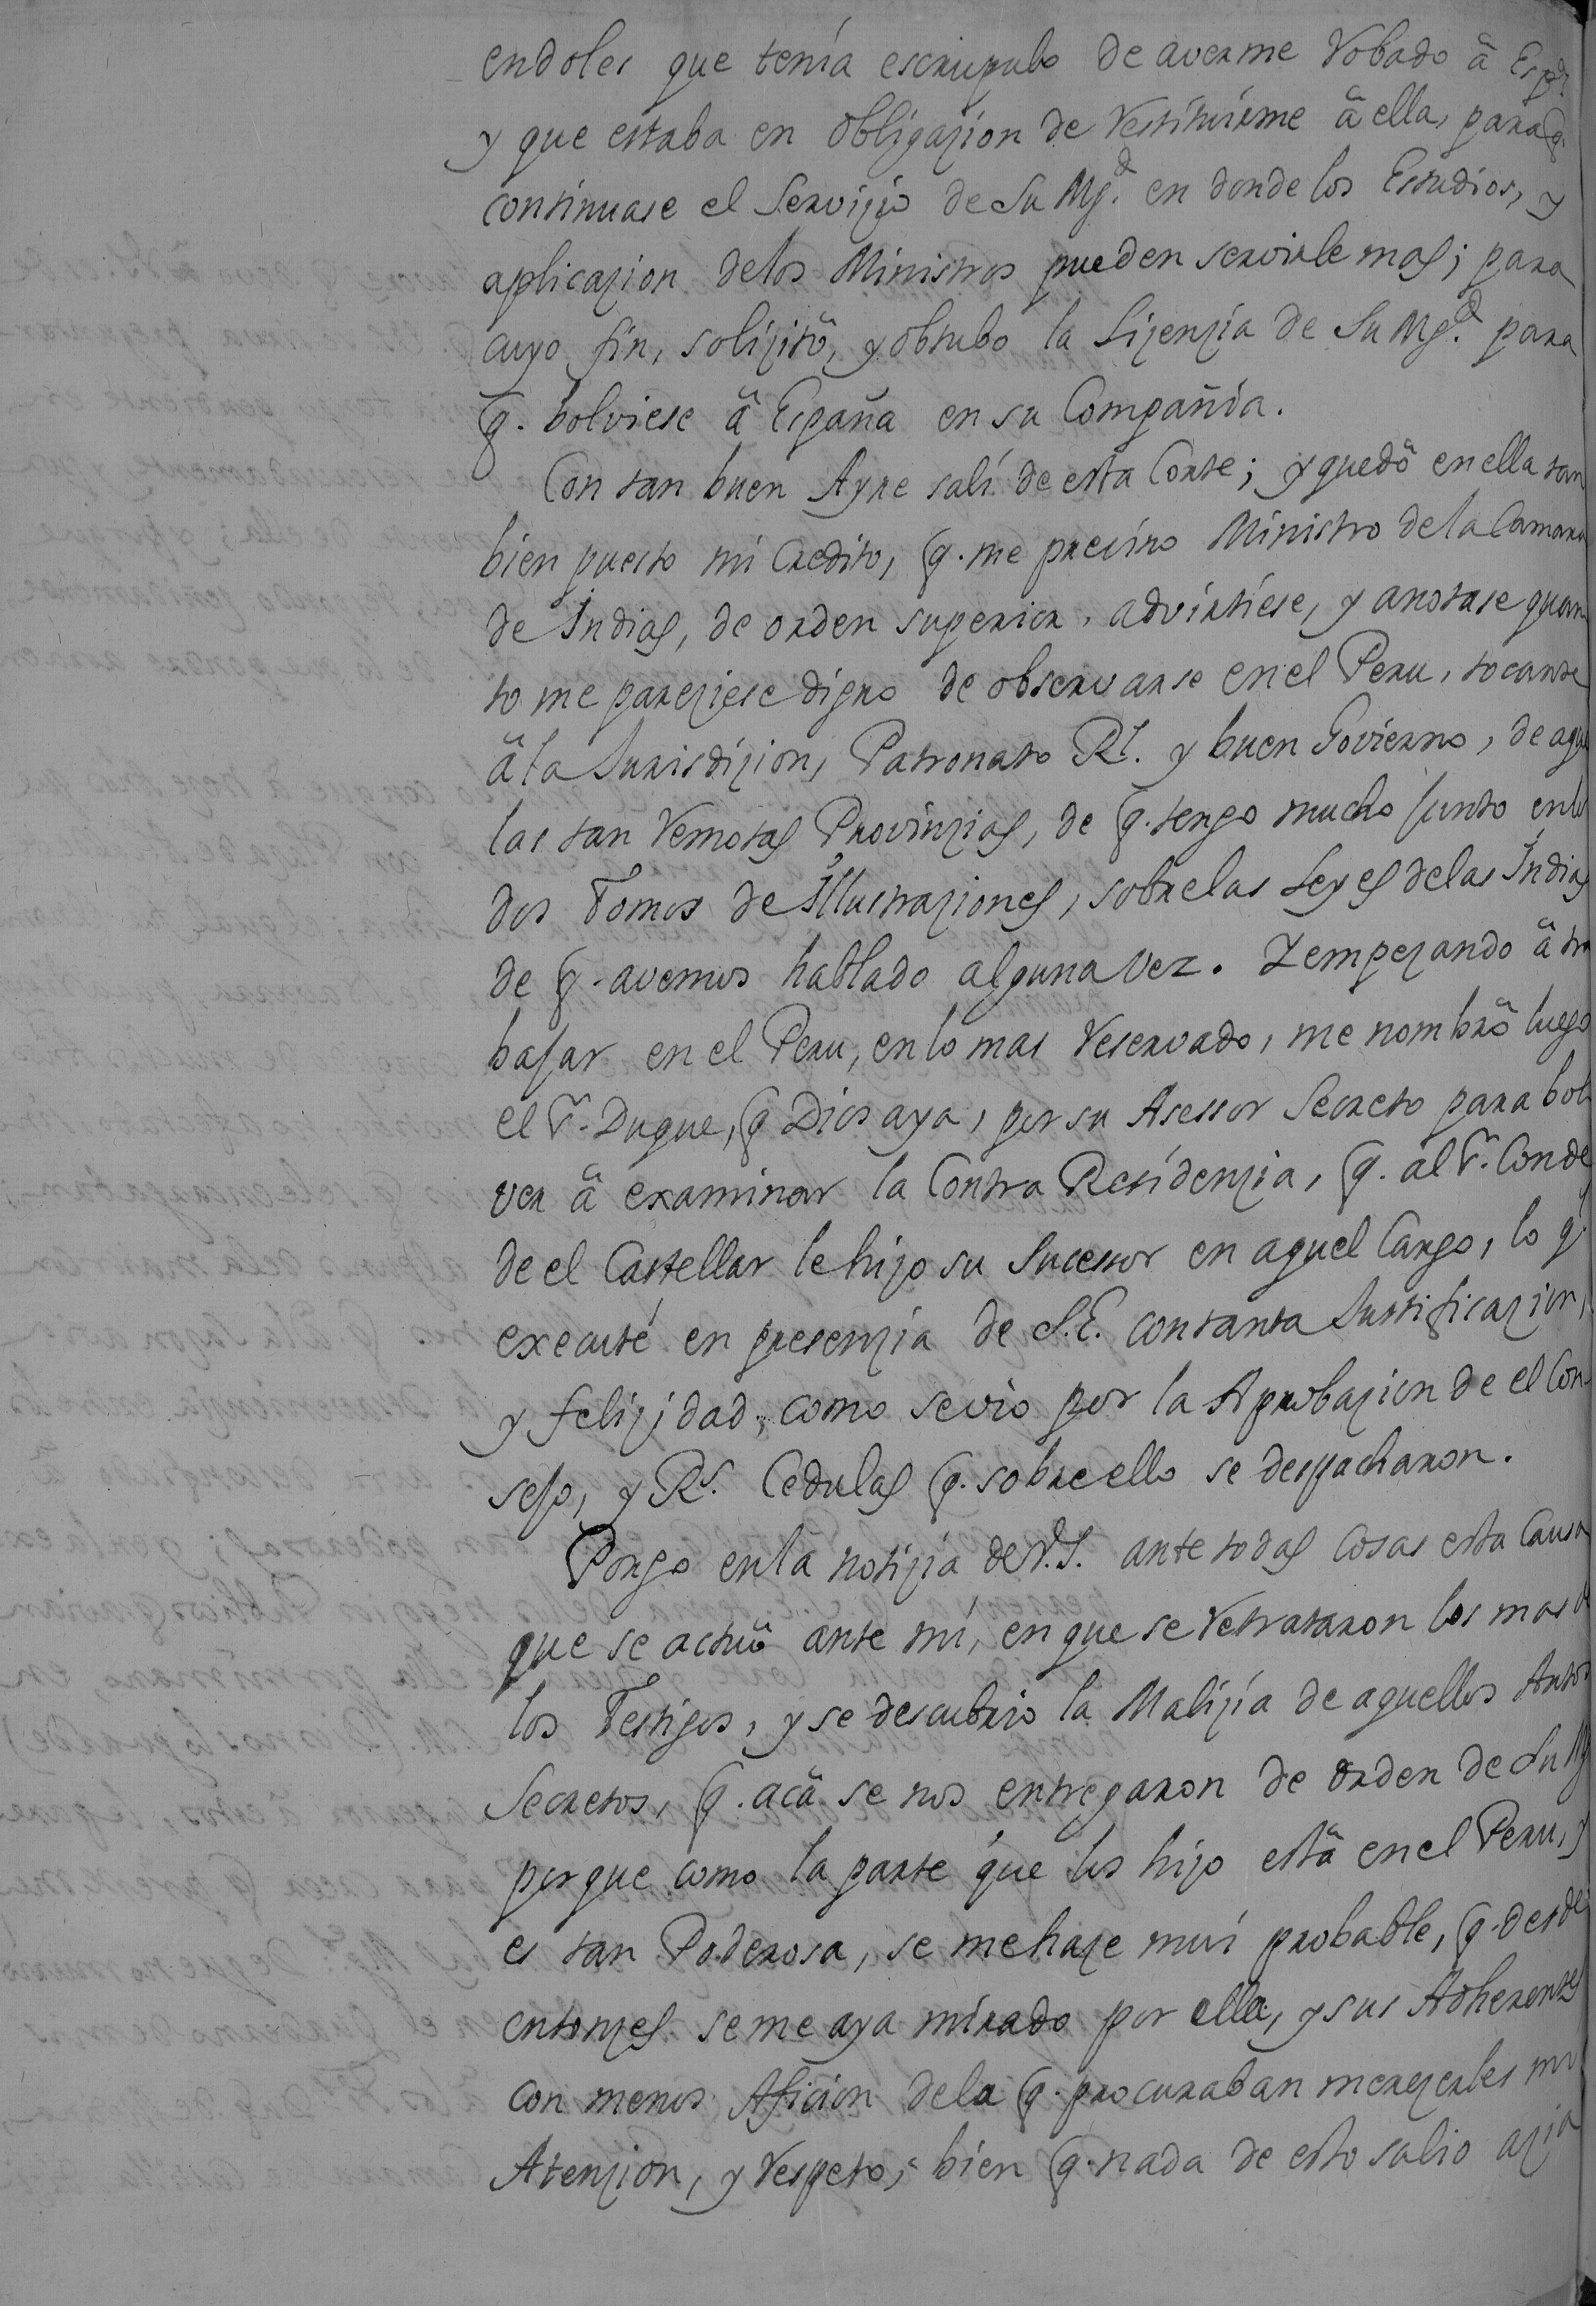 endoles que tenía escrupulo de averme Robado â Espª.
y que estaba en obligazion de Restituirme â ella, para q.
continuase el Servizio de Su Mg.d en donde los Estudios, y
aplicazion delos Ministros pueden servirle mas; para
cuyo fin, solizitô, y obtubo la Lizenzia de Su Mg.d para
q. bolviese â España en su Compañía.
Con tan buen Ayre salí de esta Corte; y quedô en ella tan
bien puesto mi Credito, q. me previno Ministro dela Camara
de Indias, de orden superior, advirtiese, y anotase quan
to me pareziese digno de observarse en el Peru, tocante
â la Jurisdizion, Patronato Rl. y buen Govierno, de aque
las tan Remotas Provinzias, de q. tengo mucho junto en los
dos Tomos de Illustraziones, sobre las Leyes delas Indias
de q. avemos hablado alguna vez. Y empezando â tra
bajar en el Peru, en lo mas Reservado, me nombrô luego
el Sr. Duque, q Dios aya, por su Asessor Secreto para bol
ver â examinar la Contra Residenzia, q. al Sr. Conde
de el Castellar le hizo su Sucessor en aquel Cargo, lo q
executé en presenzia de S.E. con tanta Justificazion,
y felizidad, como se vio por la Aprobazion de el Con-
sejo, y Rs. Cedulas q. sobre ello se despacharon.
Pongo en la notizia de V.S. ante todas Cosas esta Causa
que se actuô ante mí, en que se Retrataron los mas de
los Testigos, y se descubrio la Malizia de aquellos Autos
Secretos, q. acâ se nos entregaron de orden de Su Mg
porque como la parte que los hizo estâ en el Peru, y
es tan Poderosa, se me haze mui probable, q. desde
entonzes se me aya mirado por ella, y sus Adherentes
con menos Aficion dela q. procuraban merezerles mi
Atenzion, y Respeto; bien q. nada de esto salio azia